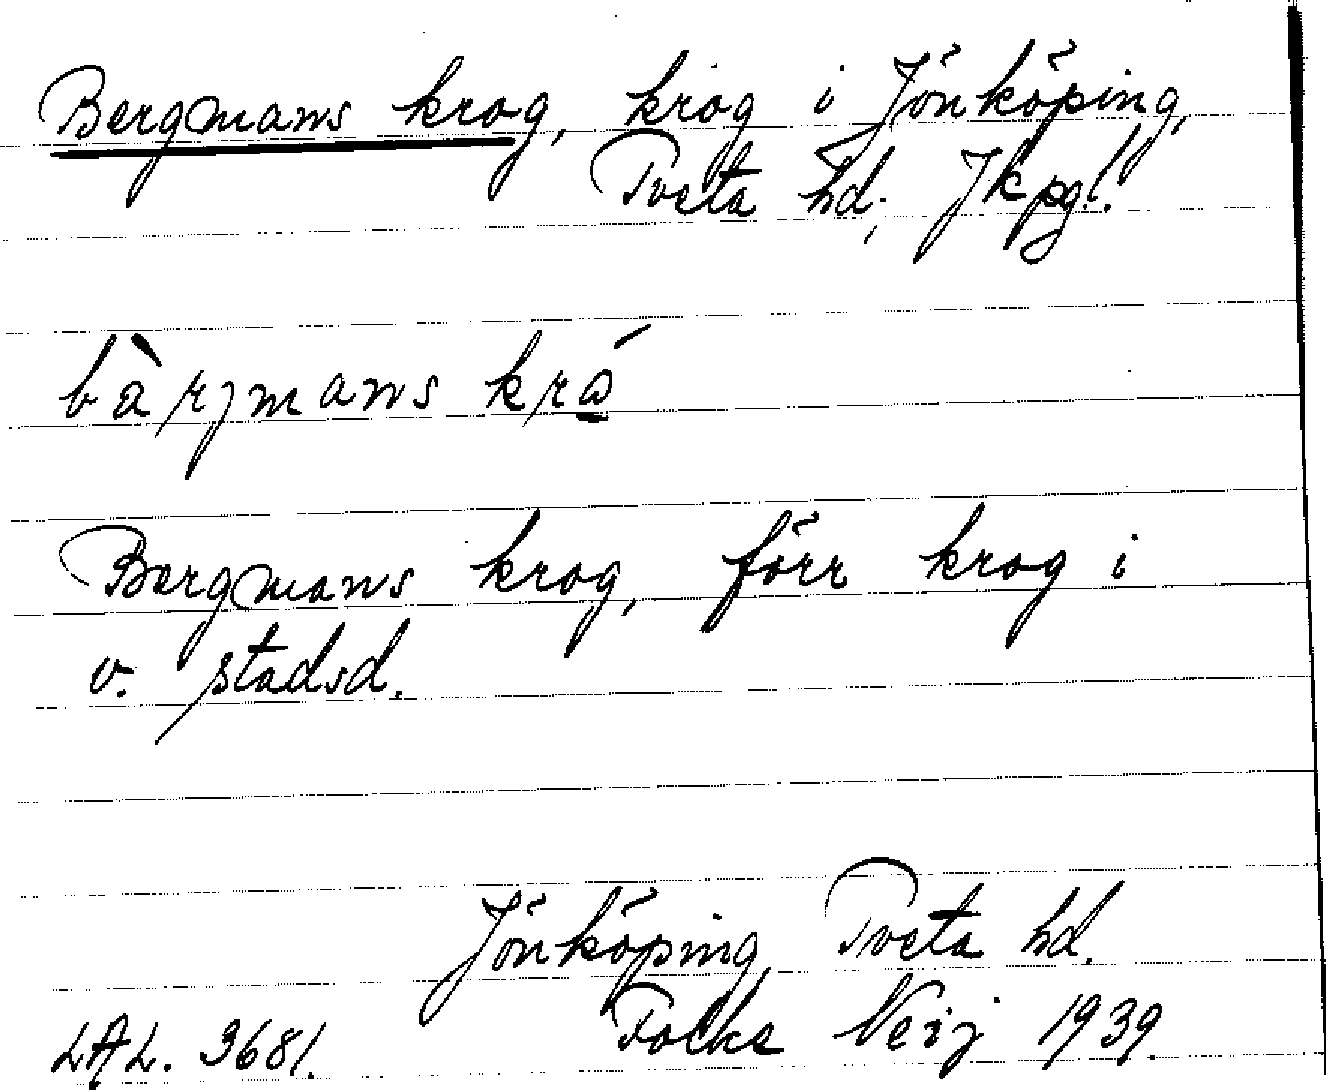 Bergmans krog, krog i Jönköping,
Tveta hd; Jkpg.l.
bàrjmans krɷ́
Bergmans krog, förr krog i
v. stadsd.
Jönköping, Tveta hd.
LAL. 3681. Folke Neij 1939.